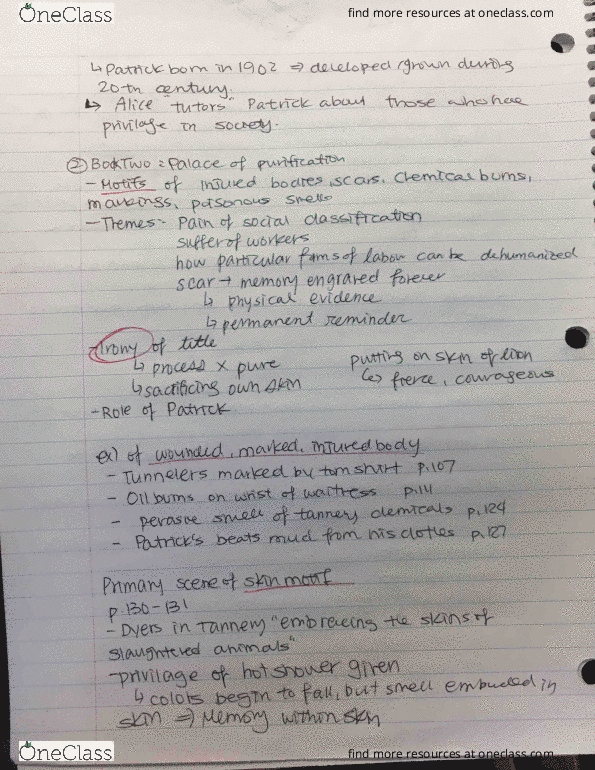 OneClass
find more resources at oneclass.com
↳ Patrick born in 1902 ⇒ developed/grown during
20-th century.
↳ Alice "tutors" Patrick about those who have
privilage in society.
② Book Two : Palace of purification
- Motifs of injured bodies, scars, chemical burns,
markings, poisonous smells
- Themes - Pain of social classification
suffer of workers
how particular forms of labour can be dehumanized
scar → memory engraved forever
↳ physical evidence
↳ permanent reminder
- Irony of title
↳ process x pure
↳ sacrificing own skin
putting on skin of lion
↳ fierce, courageous
- Role of Patrick
ex) of wounded, marked, injured body
- Tunnelers marked by torn shirt p.107
- Oil burns on wrist of waitress p.111
- pervasive smell of tannery chemicals p.124
- Patrick's beats mud from his clothes p.127
Primary scene of skin motif
p.130-131
- Dyers in Tannery "embracing the skins of
slaughtered animals"
- privilage of hot shower given
↳ colors begin to fall, but smell embedded in
skin ⇒ Memory within skin
OneClass
find more resources at oneclass.com